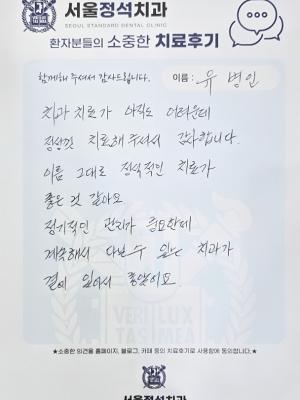 서울정석치과
SEOUL STANDARD DENTAL CLINIC
환자분들의 소중한 치료후기
함께해 주셔서 감사드립니다.
이름 : 유 병인
치과 치료가 아직도 어려운데
정성껏 치료해 주셔서 감사합니다.
이름 그대로 정석적인 치료가
좋은 것 같아요
정기적인 관리가 중요한데
계속해서 다닐 수 있는 치과가
곁에 있어서 좋았어요.
VERI LUX
TAS MEA
★소중한 의견을 홈페이지, 블로그, 카페 등의 치료후기로 사용함에 동의합니다.★
서울정석치과